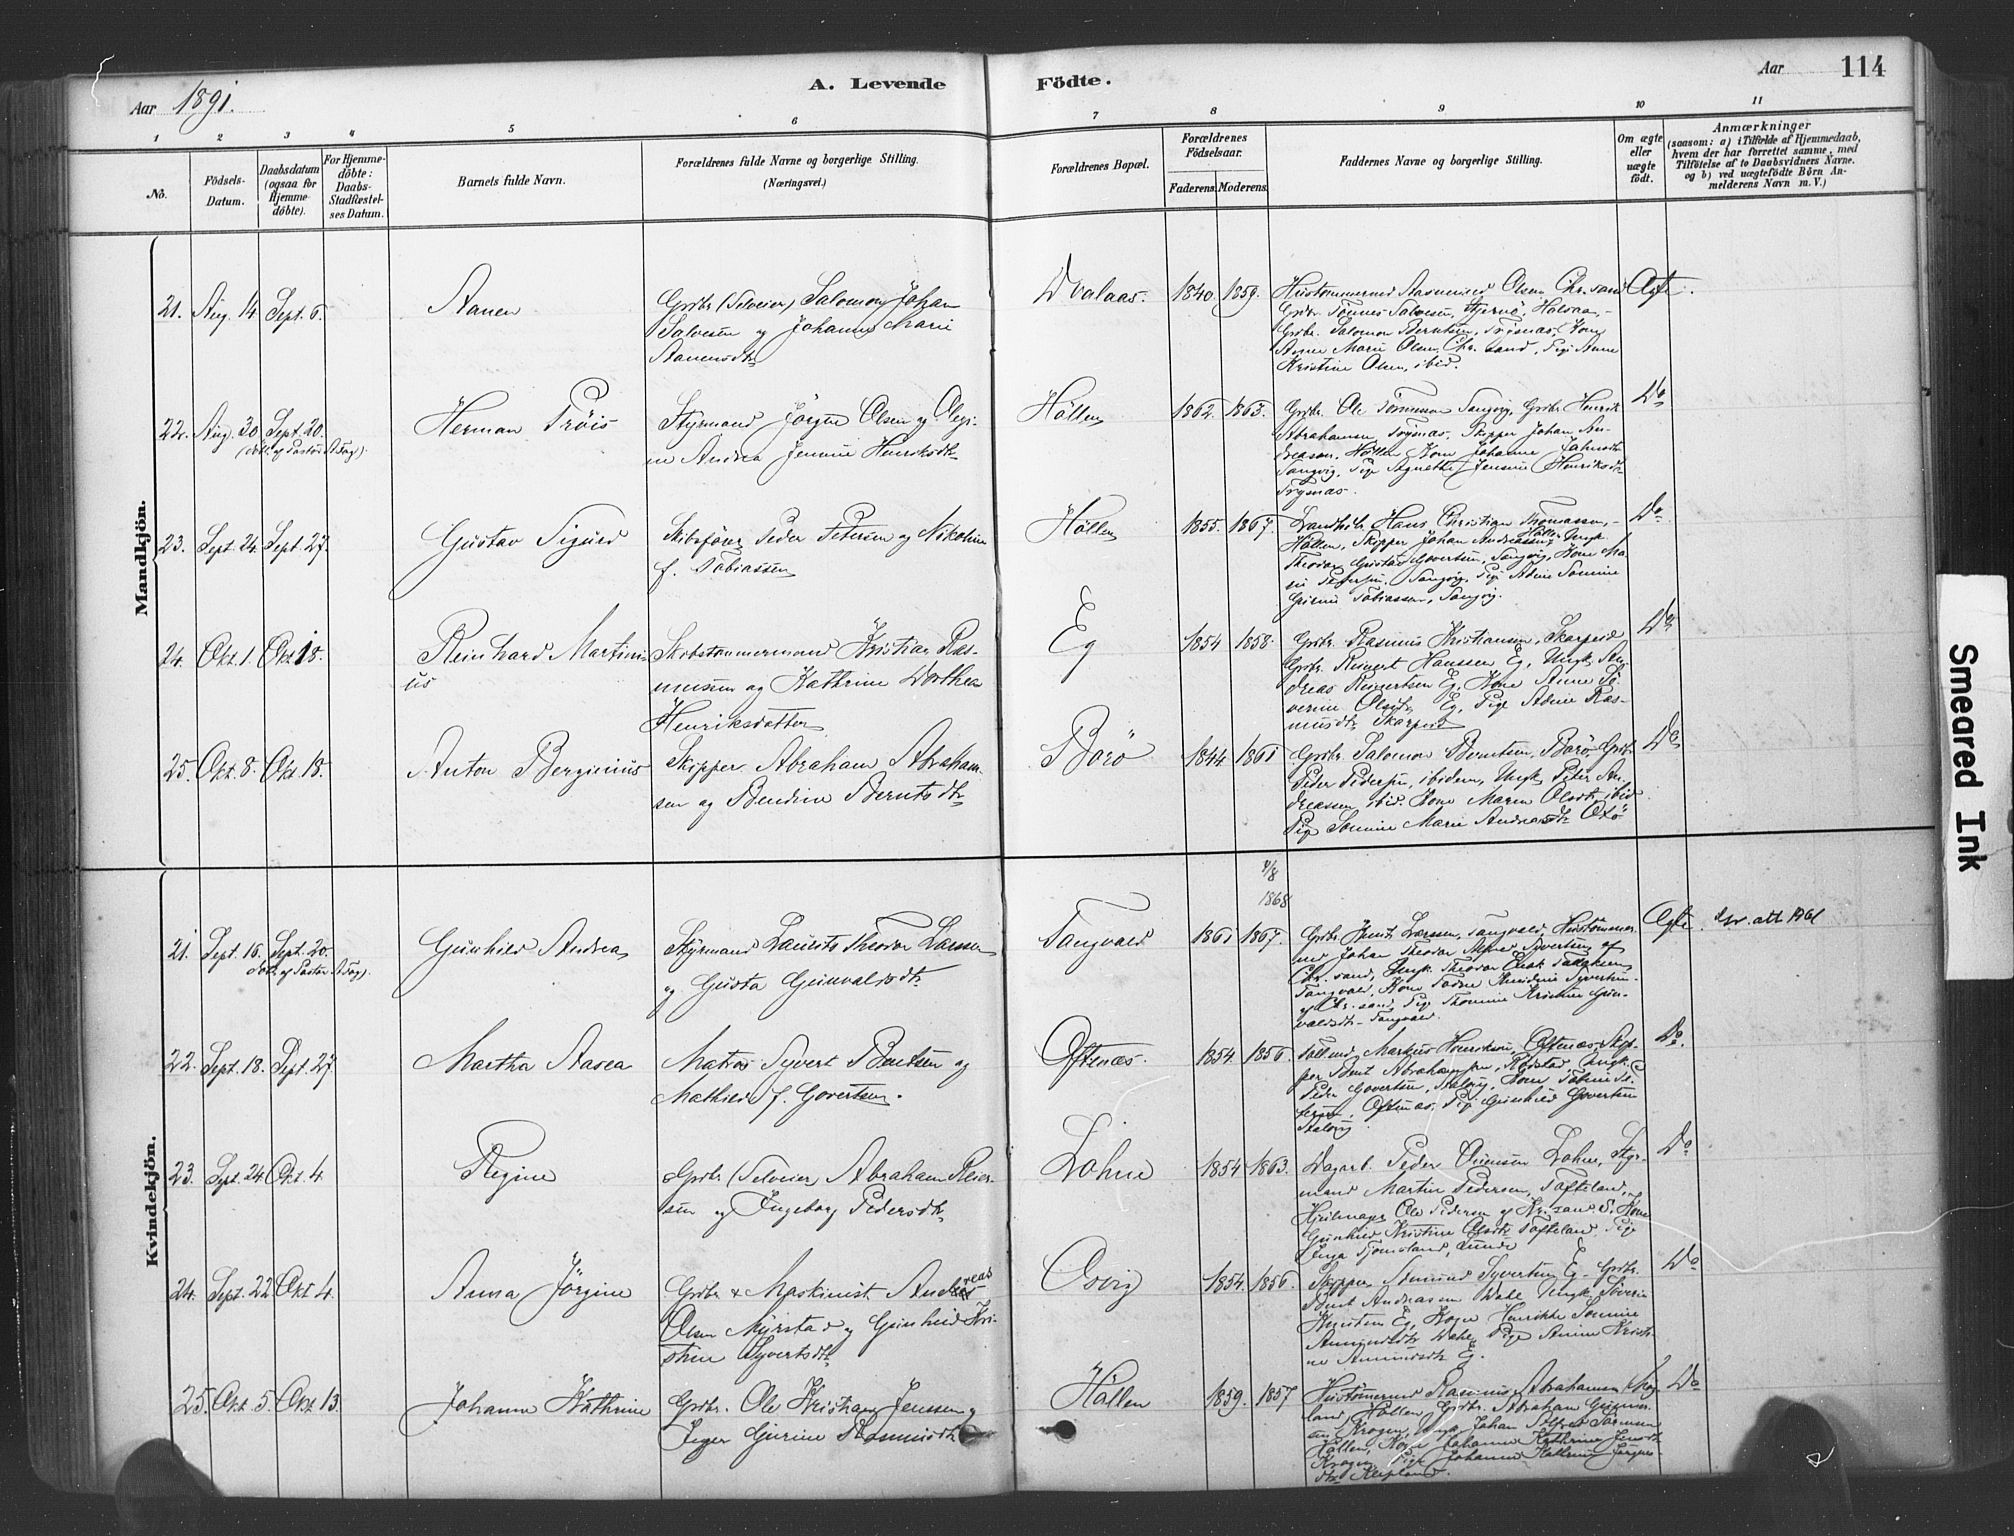 Aar 1891.
A. Levende Födte.
Aar 114
1 2 3 4 5 6 7 8 9 10 11
No.
Födsels-
Datum.
Daabsdatum
(ogsaa for
Hjemme-
döbte).
For Hjemme-
döbte:
Daabs-
Stadfæstel-
ses Datum.
Barnets fulde Navn.
Forældrenes fulde Navne og borgerlige Stilling.
(Næringsvei.)
Forældrenes Bopæl.
Forældrenes
Födselsaar.
Faderens. Moderens.
Faddernes Navne og borgerlige Stilling.
Om ægte
eller
uægte
födt.
Anmærkninger
(saasom: a) i Tilfælde af Hjemmedaab,
hvem der har forrettet samme, med
Tilföielse af to Daabsvidners Navne.
og b) ved uægtefödte Börn An-
melderens Navn m. V.)
Mandkjön.
21. Aug. 14 Sept. 6.
Aanen
Grdbr. (Selveier) Salomon Johan
Salvesen og Johanne Marie
Aanensdtr
Dvalaas. 1840. 1859.
Hustömmermd Rasmus Olsen Chr.sand
Grdbr. Tönnes Salvesen, Stjernö,
Grdbr. Salomon Berntsen, Trysnæs, Kone
Anne Marie Olsen, Chr.sand, Pige Anne
Kristine Olsen, ibid.
Ægte.
22. Aug. 30 Sept. 20.
(döbt af Pastor A Fog).
Herman Tröis
Styrmand Jörgen Olsen og Olegi-
ne Andrea Jensine Henriksdtr
Höllen 1862. 1863.
Grdbr. Ole Tönnesen Langvig, Grdbr. Henrik
Abrahamsen Trysnæs, Skipper Johan An-
dreassen, Höllen Kone Johanne
Langvig, Pige Agnethe Jensine Henriksdtr
Trysnæs.
Do
23. Sept. 24 Sept. 27.
Gustav Sigurd
Skibsförer Peder Petersen og Nikoline
f. Tobiassen
Höllen 1855. 1867.
Landhdlr. Hans Christian Thomassen,
Höllen, Skipper Johan Andreassen, Höllen Ungk.
Theodor Gustav Govertsen, Langvig, Kone Ma-
rie Pedersen, Langvig, Pige Adine Tomine
Gurine Tobiassen, Langvig.
Do
24. Okt. 1. Okt. 18.
Reinhard Martini-
us
Skibstömmermand Kristian Ras-
mussen og Kathrine Dorthea
Henriksdatter
Eg 1854 1858.
Grdbr. Rasmus Kristiansen, Skarpeid
Grdbr. Reinert Hanssen Eg, Ungk. An-
dreas Reinertsen Eg, Kone Anne Se-
verine Olsdtr Eg, Pige Adine Ras-
musdtr Skarpeid
Do
25. Okt. 8. Okt. 18.
Anton Berginius
Skipper Abraham Abraham-
sen og Bendine Berntsdtr
Borö 1844 1861
Grdbr. Salomon Berntsen, Borö, Grdbr.
Peder Pedersen, ibidem, Ungk. Peter An-
dreassen, ibid. Kone Maren Olsdtr ibid.
Pige Tomine Marie Andreasdtr Oxö
Do
Kvindekjön.
21. Sept. 16. Sept. 20.
(döbt af Pastor A Fog).
Gunhild Andrea
Styrmand Laurits Theodor Larsen
og Gusta Gunvalsdtr
Tangvald 1861 1867.
4/8
1868
Grdbr. Larssen, Tangvald, Hustömmer-
md Johan Theodor Syvertsen af
Chr.sand, Ungk. Theodor
Tangvald, Kone
af Chr.sand, Pige Thomine Kristine Gun-
valdsdtr Tangvald.
Ægte.
22. Sept. 18. Sept. 27
Martha Aasea
Matros Syvert Bentsen og
Mathilde f. Govertsen.
Oftenæs. 1854. 1856.
Markus Henriksen, Oftenæs, Skip-
per Bent Abrahamsen, Ungk.
Peder Govertsen, Stalvig, Kone
Oftenæs, Pige Gunhild Govertsen
Stalvig
Do
23. Sept. 24 Okt. 4
Regine
Grdbr. (Selveier Abraham Reier-
sen og Ingeborg Pedersdtr
Lohne 1854 1863.
Dagarb. Peder Lohne, Styr-
mand Martin Pedersen, Tofteland,
Ole Pedersen af Kr.sand S. Kone
Gunhild Kristine Olsdtr Tofteland, Pige
Inga Tjomsland, Lunde
Do
24. Sept. 22 Okt. 4.
Anna Jörgine
Grdbr. & Maskinist Andreas
Olsen Myrstad og Gunhild Kri-
stine Syvertsdtr
Osvig 1854. 1856.
Skipper Syvertsen Eg. Grdbr.
Bent Andreassen Dahl Ungk. Severin
Knutsen Eg, Kone Henrikke Tomine
Amundsdtr Dahl, Pige Anine Kristi-
ne Amundsdtr Eg.
Do
25. Okt. 5. Okt. 13.
Johanne Kathrine
Grdbr. Ole Kristian Jenssen og
Inger Gurine Rasmusdtr
Höllen 1859. 1857
Hustömermd Rasmus Abrahamsen
Höllen, Grdbr. Abraham Gunner-
Krogen, Johan Alfred
Höllen, Kone Johanne Kathrine Jensdtr
Krogen, Pige Johanne Kathrine Jörgens-
dtr Klepland.
Do
Smeared Ink